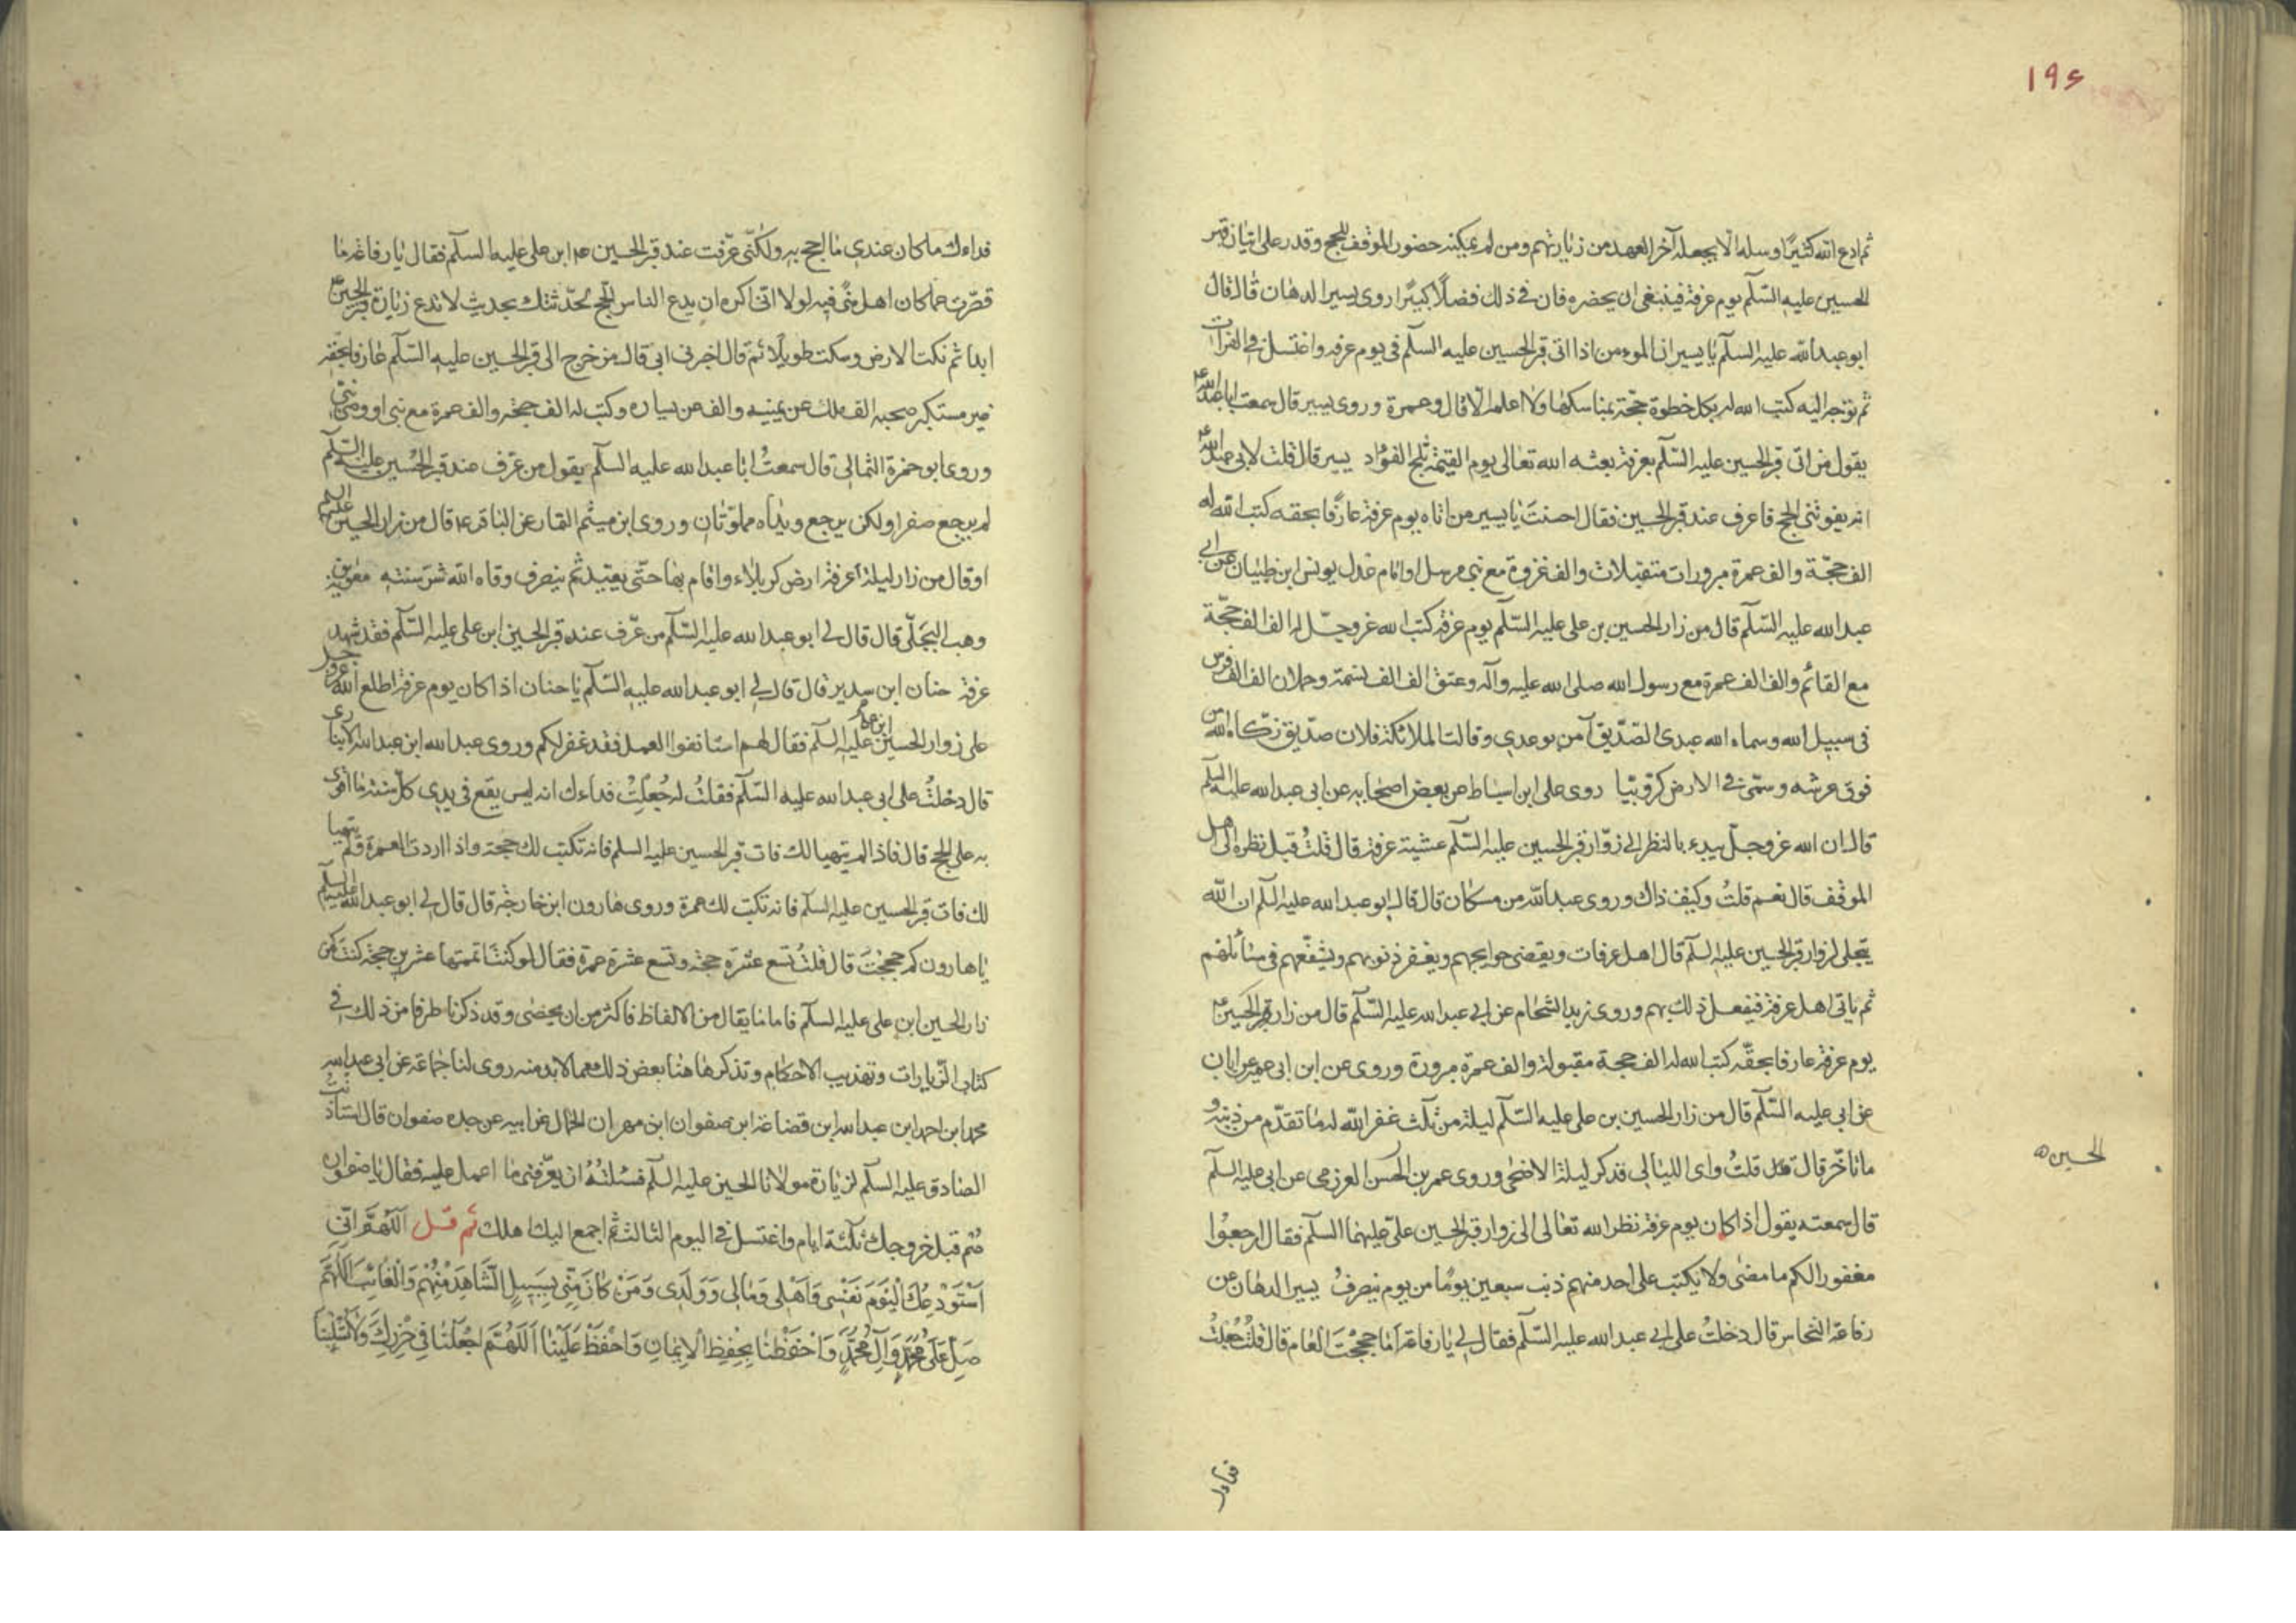 ۱۹۶
ثم ادع الله كثيرًا وسله الا يجعله آخر العهد من زيارتهم ومن لم يمكنه حضور الموقف للحج وقدر على اتيان قبر
الحسين عليه السّلم يوم عرفة فينبغى ان يحضره فان فى ذلك فضلًا كبيرًا روى بسير الدهان قال قال
ابو عبد الله عليه السلم يا بسير ان المومن اذا اتى قبر الحسين عليه السلم فى يوم عرفه واغتسل فى الفرات
ثم توجه اليه كتب الله له بكل خطوة حجّة بمناسكها ولا اعلمه الّا قال وعمرة وروى بسير قال سمعت ابا عبد الله ع
يقول من اتى قبر الحسين عليه السّلم بعرفة بعثه الله تعالى يوم القيمة ثلج الفؤاد بسير قال قلت لابى عبد الله ع
انه يفوتنى الحج فاعرف عند قبر الحسين فقال احسنت يا بسير من اتاه يوم عرفة عارفًا بحقه كتب الله له
الف حجّة والف عمرة مبرورات متقبلات والف غزوة مع نبى مرسل او امام عدل يونس ابن ظبيان عن ابى
عبد الله عليه السّلم قال من زار الحسين بن على عليه السّلم يوم عرفة كتب الله عز وجلّ له الف الف حجّة
مع القائم والف الف عمرة مع رسول الله صلى الله عليه وآله وعتق الف الف نسمة وحملان الف الف فرس
فى سبيل الله وسماه الله عبدى الصّديق آمن بوعدى وقالت الملائكة فلان صدّيق زكّاه الله من
فوق عرشه وسمّى فى الارض كروبيّا روى على ابن اسباط عن بعض اصحابه عن ابى عبد الله عليه السلم
قال ان الله عز وجلّ يبدء بالنظر الى زوّار قبر الحسين عليه السّلم عشيّة عرفة قال قلتُ قبل نظره الى اهل
الموقف قال نعم قلتُ وكيف ذاك وروى عبد الله من مسكان قال قال ابو عبد الله عليه السلم ان الله
يتجلى لزوار قبر الحسين عليه السلم قال اهل عرفات ويقضى حوايجهم ويغفر ذنوبهم ويشفّعهم فى مسائلهم
ثم ياتى اهل عرفة فيفعل ذلك بهم وروى زيد الشحام عن ابى عبد الله عليه السّلم قال من زار قبر الحسين ع
يوم عرفة عارفا بحقّه كتب الله له الف حجة مقبولة والف عمرة مبرورة وروى عن ابن ابى عمير عن ابان
عن ابى عليه السّلم قال من زار الحسين بن على عليه السّلم ليلة من ثلث غفر الله له ما تقدّم من ذنبه و
ما تاخّر قال قلتُ واى الليالى فذكر ليلة الاضحى وروى عمر بن الحسن العرزمى عن ابى عليه السلم
الحسين
قال سمعته يقول اذا كان يوم عرفة نظر الله تعالى الى زوار قبر الحسين علىّ عليهما السلم فقال ارجعوا
مغفورا لكم ما مضى ولا يكتب على احد منهم ذنب سبعين يومًا من يوم ينصرفُ بسير الدهان عن
رفاعة النحاس قال دخلتُ على ابى عبد الله عليه السّلم فقال لى يا رفاعة اما حججتَ العام قال قلتُ جُعلتُ
فداءك
فداءك ما كان عندى ما احج به ولكنّى عرّفت عند قبر الحسين ابن على عليه السلم فقال يا رفاعة ما
قصّرت عما كان اهل منًى فيه لولا انى اكره ان يدع الناس الحج لحدّثتك بحديث لا تدع زيارة قبر الحسين ع
ابدا ثم نكت الارض وسكت طويلًا ثم قال اخبرنى ابى قال من خرج الى قبر الحسين عليه السّلم عارفا بحقه
غير مستكبر صحبه الف ملك عن يمينه والف عن يساره وكتب له الف حجّة والف عمرة مع نبى او وصى نبى
وروى ابو حمزة الثمالى قال سمعتُ ابا عبد الله عليه السلم يقول من عرّف عند قبر الحسين عليه السّلم
لم يرجع صفرا ولكن يرجع ويداه مملوّتان وروى ابن ميثم التمار عن الباقر ع قال من زار الحسين عليه السلم
او قال من زار ليلة عرفة ارض كربلاء واقام بها حتّى يعيّد ثم ينصرف وقاه الله شرّ سنته معوية بن
وهب البجلّى قال قال لى ابو عبد الله عليه السّلم من عرّف عند قبر الحسين ابن على عليه السّلم فقد شهد
عرفة حنان ابن سدير قال قال لى ابو عبد الله عليه السّلم يا حنان اذا كان يوم عرفة اطلع الله عز وجل
على زوار الحسين ابن على عليه السلم فقال لهم استانفوا العمل فقد غفر لكم وروى عبد الله ابن عبد الله الانبارى
قال دخلتُ على ابى عبد الله عليه السّلم فقلتُ له جُعلتُ فداءك انه ليس يقع فى يدى كلّ سنة ما اقوى
به على الحج قال فاذا لم يتهيا لك فات قبر الحسين عليه السلم فانه تكتب لك حجة واذا اردت العمرة ولم يتهيا
لك فات قبر الحسين عليه السلم فانه تكتب لك عمرة وروى هارون ابن خارجة قال قال لى ابو عبد الله عليه السلم
يا هارون كم حججتَ قال قلتُ تسع عشرة حجة وتسع عشرة عمرة فقال لو كنت اتممتها عشرين حجة كنت كمن
زار الحسين ابن على عليه السلم فاما ما يقال من الالفاظ فاكثر من ان يحضى وقد ذكرنا طرفا من ذلك فى
كتابى الزّيارات وتهذيب الاحكام وتذكر هاهنا بعض ذلك مما لابد منه روى لنا جماعة عن ابى عبد الله
محمد ابن احمد ابن عبد الله ابن قضاعة ابن صفوان ابن مهران الجمال عن ابيه عن جده صفوان قال استاذنت
الصادق عليه السلم لزيارة مولانا الحسين عليه السلم فسئلتُهُ ان يعرّفنى ما اعمل عليه فقال يا صفوان
صُم قبل خروجك ثلثة ايام واغتسل فى اليوم الثالث ثم اجمع اليك اهلك ثم قل اللّهُمَّ اِنّى
اَسْتَوْدِعُكَ اليَوْمَ نَفْسى وَاَهْلى وَمالى وَوَلَدى وَمَنْ كانَ مِنّى بِسَبيلٍ الشّاهِدَ مِنْهُمْ وَالْغائِبَ اَللّهُمَّ
صَلِّ عَلى مُحَمَّدٍ وَآلِ مُحَمَّدٍ وَاحْفَظْنا بِحِفْظِ الاِيمانِ وَاحْفَظْ عَلَيْنا اَللّهُمَّ اجْعَلْنا فى حِرْزِكَ وَلا تَسْلُبْنا